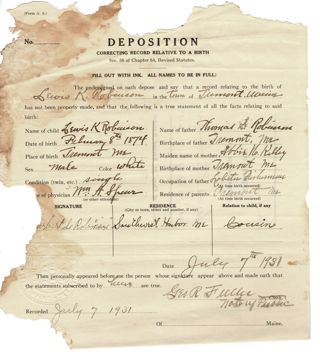 (Form A. S.)
No.
DEPOSITION
CORRECTING RECORD RELATIVE TO A BIRTH
Sec. 38 of Chapter 64, Revised Statutes.
FILL OUT WITH INK. ALL NAMES TO BE IN FULL!
The undersigned on oath depose and say that a record relating to the birth of
Lewis K. Robinson in the town of Tremont, Maine
has not been properly made, and that the following is a true statement of all the facts relating to said
birth:
Name of child Lewis K Robinson Name of father Thomas Robinson
Date of birth February 8th 1874 Birthplace of father Tremont, Me
Place of birth Tremont Me. Maiden name of mother Kelley
Sex Male Color white Birthplace of mother Tremont Me.
Condition (twin, etc.) single Occupation of father
(At time birth occurred)
of physician Wm A Spear Residence of parents Tremont Me.
(or other attendant) (At time birth occurred)
SIGNATURE RESIDENCE Relation to child, if any
(City or town, street and number, if any)
Robinson Southwest Harbor Me Cousin
Date July 7th 1931
Then personally appeared before me the person whose signature appear above and made oath that
the statements subscribed to by are true.
Geo R Fuller
Notary Public
Recorded July 7 1931
Of Maine.